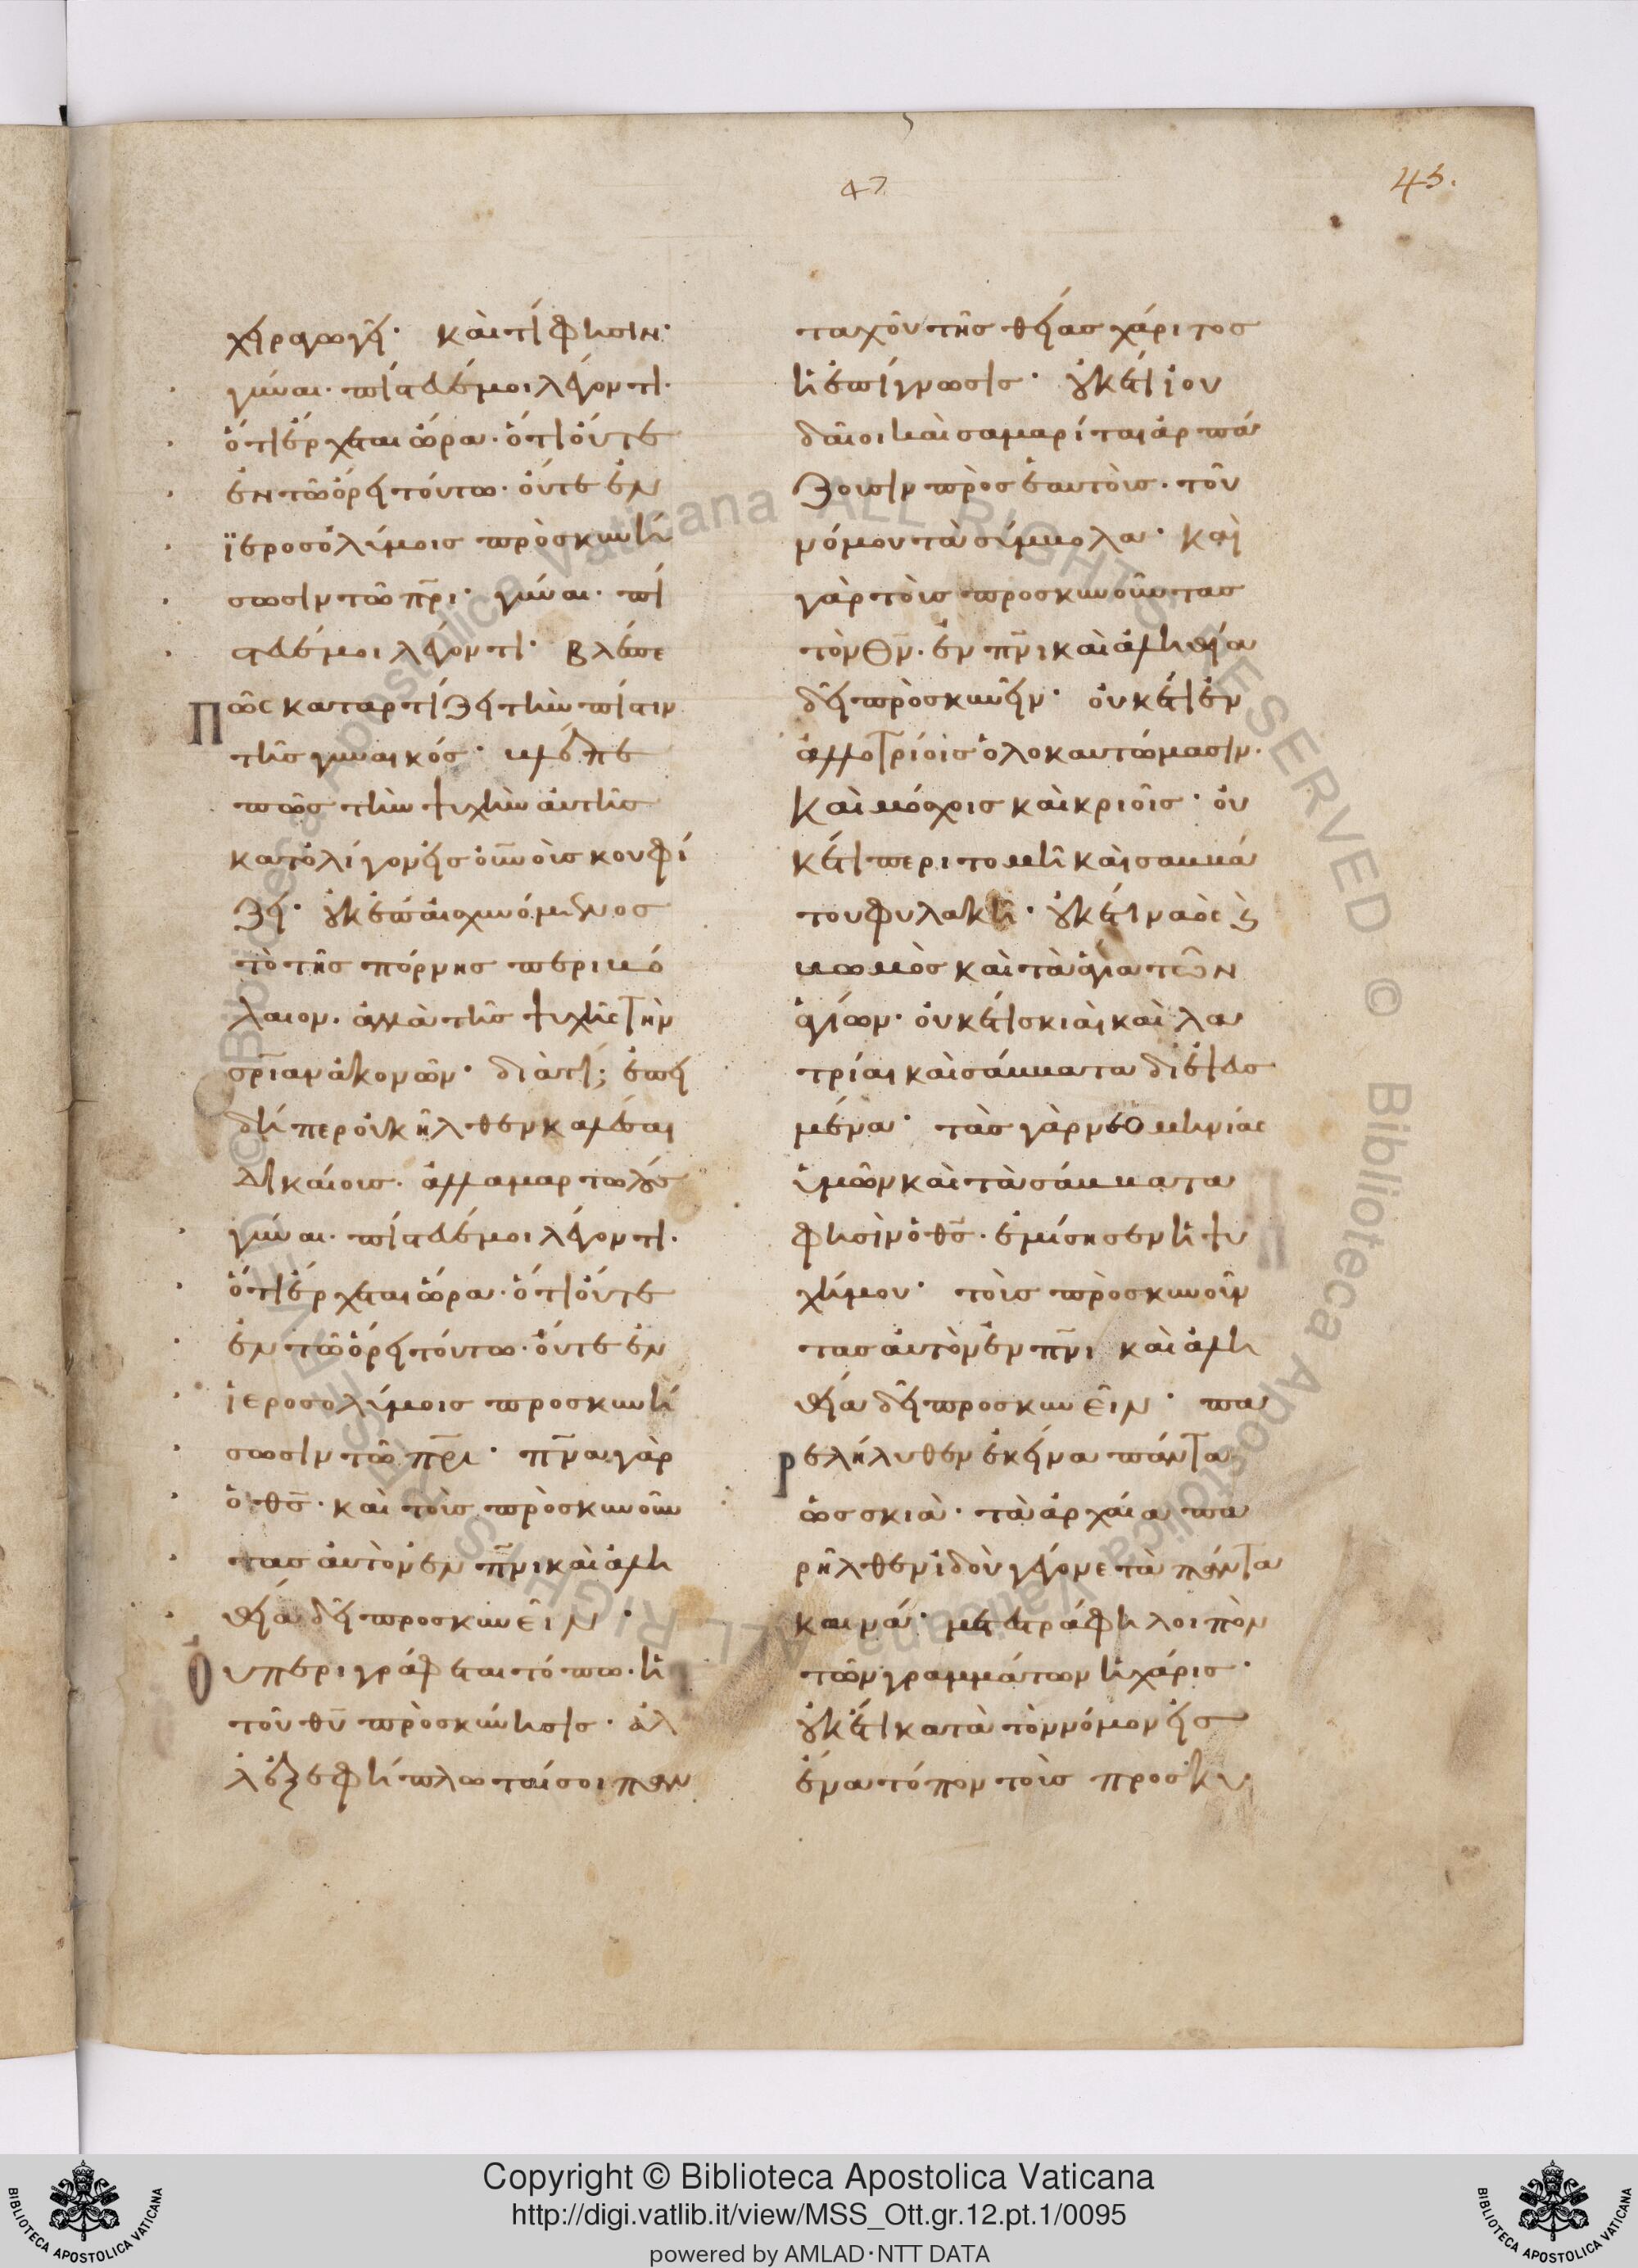 47
43.
χειραγωγεῖ· καὶ τί φησιν·
γύναι· πίστευέ μοι λέγοντι·
ὅτι ἔρχεται ὥρα· ὅτι οὔτε
ἐν τῶ ὄρει τούτω· οὔτε ἐν
ϊεροσολύμοις πρὸσκυνή
σωσιν τῶ πρι· γύναι· πί
στευέ μοι λέγοντι· βλέπε
Πῶς καταρτίζει τὴν πίστιν
τῆς γυναικός· βλέπε
πῶς τὴν ψυχὴν αὐτῆς
κατολίγον εἰς οὐνοὺς κουφί
ζει· οὐκ ἐπαισχυνόμενος
τὸ τῆς πόρνης περιβό
λαιον· ἀλλὰ τῆς ψυχῆς τὴν
σριαν ἀκονῶν· διὰτί; ἐπει
δήπερ οὐκ ἦλθεν καλέσαι
δικαίους· ἀλλαμαρτωλούς
γύναι· πίστευέ μοι λέγοντι·
ὅτι ἔρχεται ὥρα· ὅτι οὔτε
ἐν τῶ ὄρει τούτω· οὔτε ἐν
ἱεροσολύμοις προσκυνή
σωσιν τῶ πρι· πνα γὰρ
ὁ θς· καὶ τοὺς πρὸσκυνοῦν
τας αὐτὸν ἐν πνι καὶ ἀλη
θεία δεῖ προσκυνεῖν·
Οὐ περιγράφεται τόπω· ἡ
τοῦ θυ πρὸσκύνησις· ἀλ
λ ἐξεφήπλωταί σοι παν
ταχοῦ τῆς θείας χάριτος
ἡ ἐπίγνωσις· οὐκέτι ἰου
δαῖοι καὶ σαμαρίται ἁρπά
ζουσιν πρὸς ἑαυτοὺς· τοῦ
νόμου τὰ σύμβολα· καὶ
γὰρ τοὺς προσκυνοῦντας
τὸν θν· ἐν πνι καὶ ἀληθεία
δεῖ πρὸσκυνεῖν· οὐκέτι ἐν
ἀλλοτρίοις ὁλοκαυτώμασιν·
καὶ μόσχοις καὶ κριοῖς· οὐ
κέτι περιτομῆ καὶ σαββά
του φυλακῆ· οὐκέτι ναὸς καὶ
βωμὸς καὶ τὰ ἅγια τῶν
ἁγίων· οὐκέτι σκιαὶ καὶ λα
τρίαι καὶ σάββατα διεψευσ
μένα· τὰς γὰρ νεομηνίας
ὑμῶν καὶ τὰ σάββατα
φησὶν ὁ θς· ἐμίσησεν ἡ ψυ
χήμου· τοὺς πρὸσκυνοῦν
τας αὐτὸν ἐν πνι καὶ ἀλη
θεία δεῖ προσκυνεῖν· πα
ρελήλυθεν ἐκεῖνα πάντα
ὡς σκιὰ· τὰ ἀρχαῖα πα
ρῆλθεν ἰδοὺ γέγονε τὰ πάντα
καινά· μετεγράφη λοιπὸν
τῶν γραμμάτων ἡ χάρις·
οὐκέτι κατὰ τὸν νόμον εἰς
ἕνα τόπον τοὺς προσκυ
Copyright © Biblioteca Apostolica Vaticana
http://digi.vatlib.it/view/MSS_Ott.gr.12.pt.1/0095
powered by AMLAD·NTT DATA
BIBLIOTECA APOSTOLICA VATICANA
BIBLIOTECA APOSTOLICA VATICANA
© Biblioteca Apostolica Vaticana ALL RIGHTS RESERVED
© Biblioteca Apostolica Vaticana ALL RIGHTS RESERVED